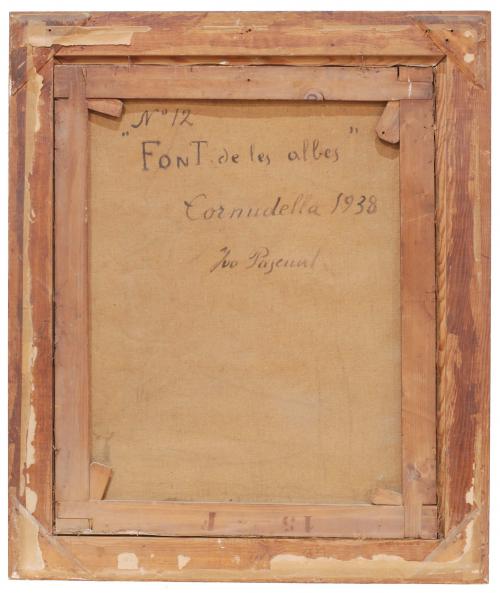 Nº 12
"FONT de les albes"
Cornudella 1938
Ivo Pascual
F 15